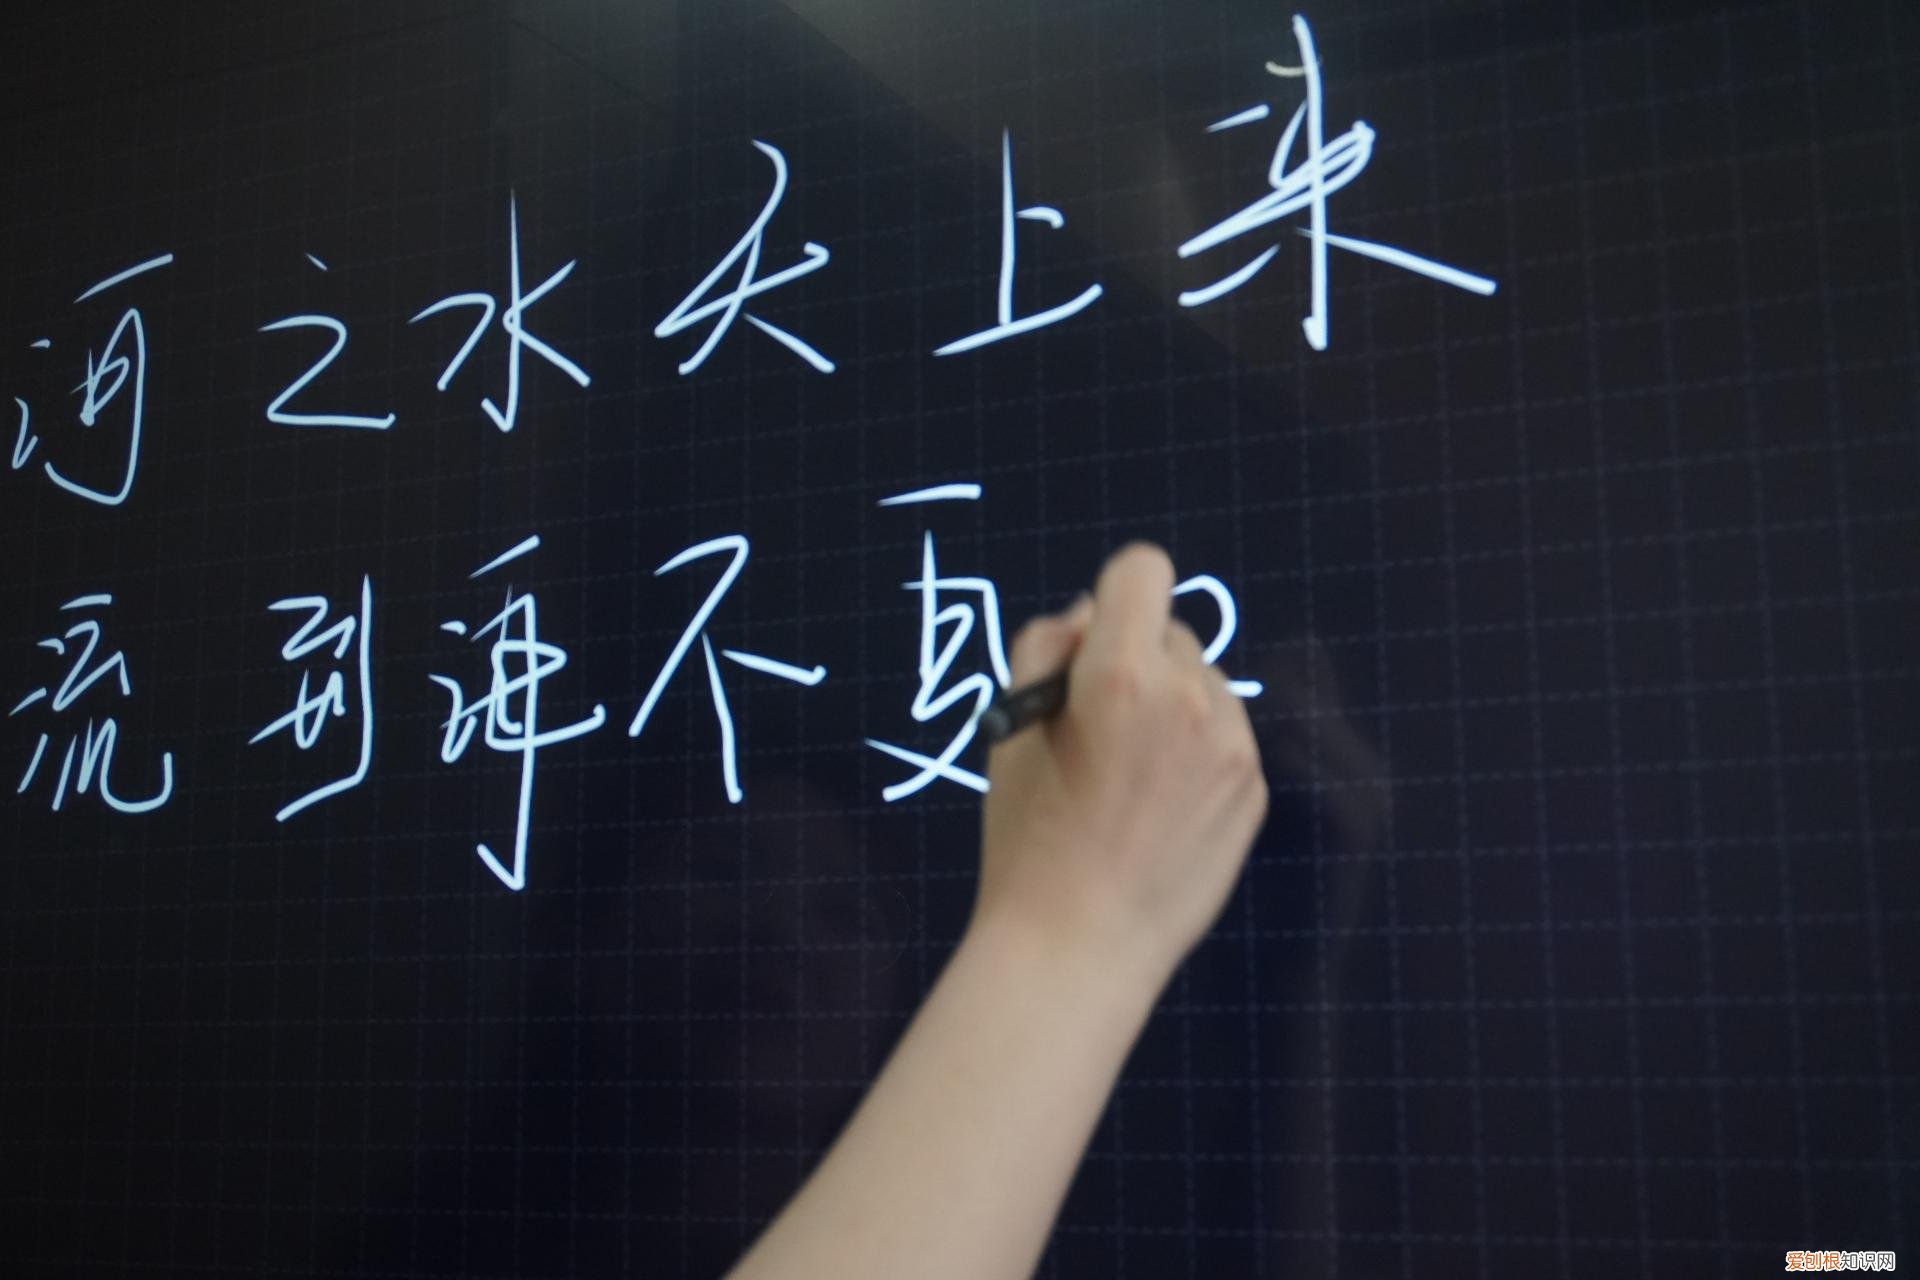 河之水天上来
流到海不复
爱刨根知识网